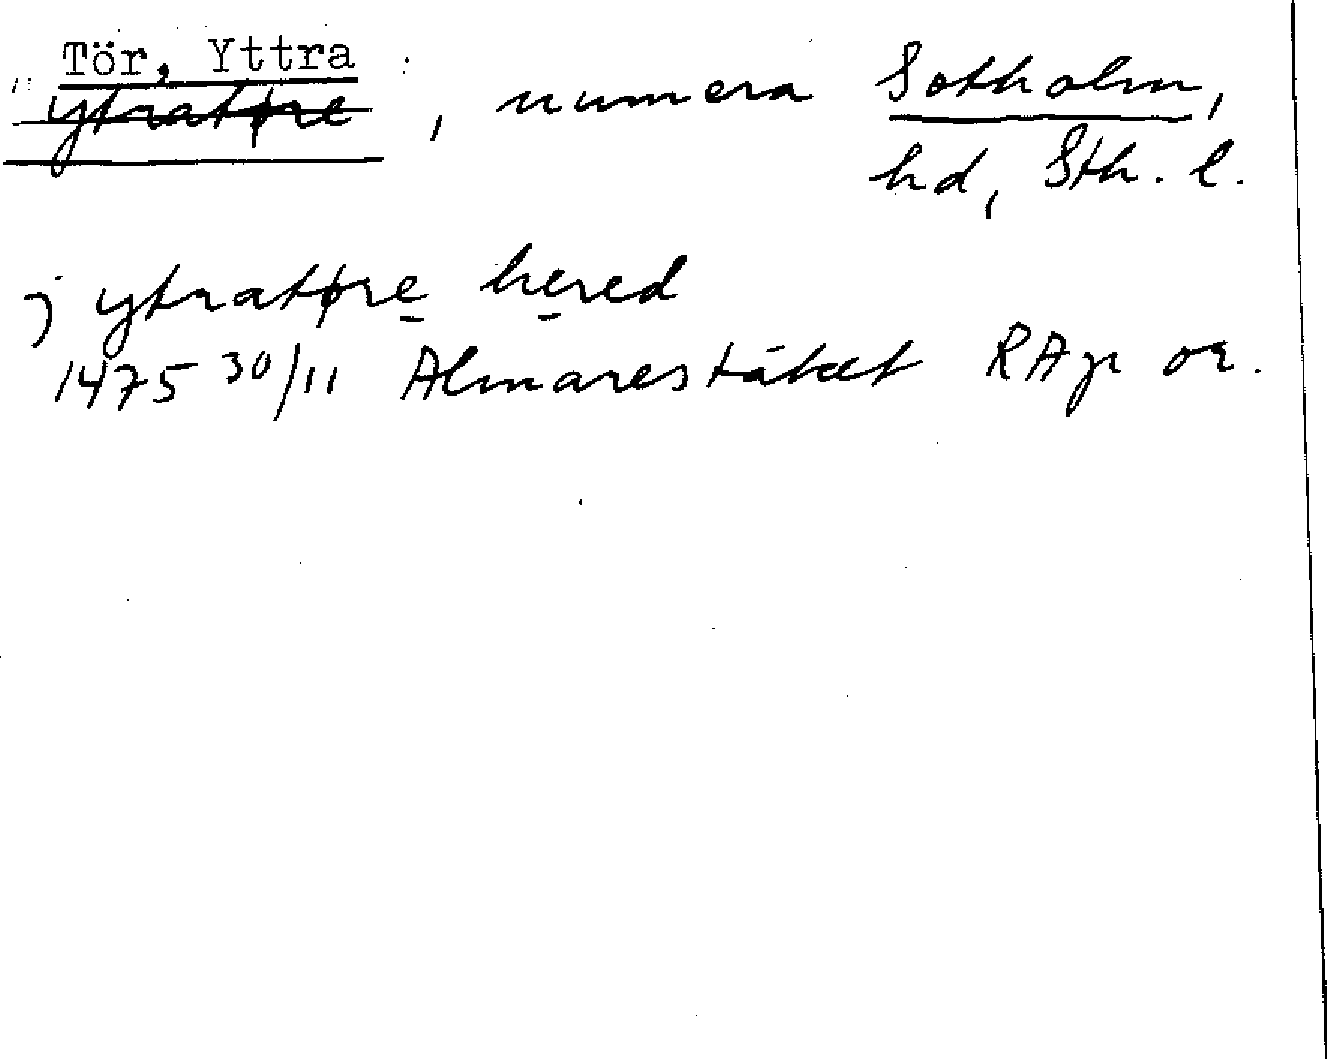 Tör, Yttra
ytratøre, numera Sotholm,
hd, Sth. l.
j ytratøre hered
1475 30/11 Almarestäket RAp or.